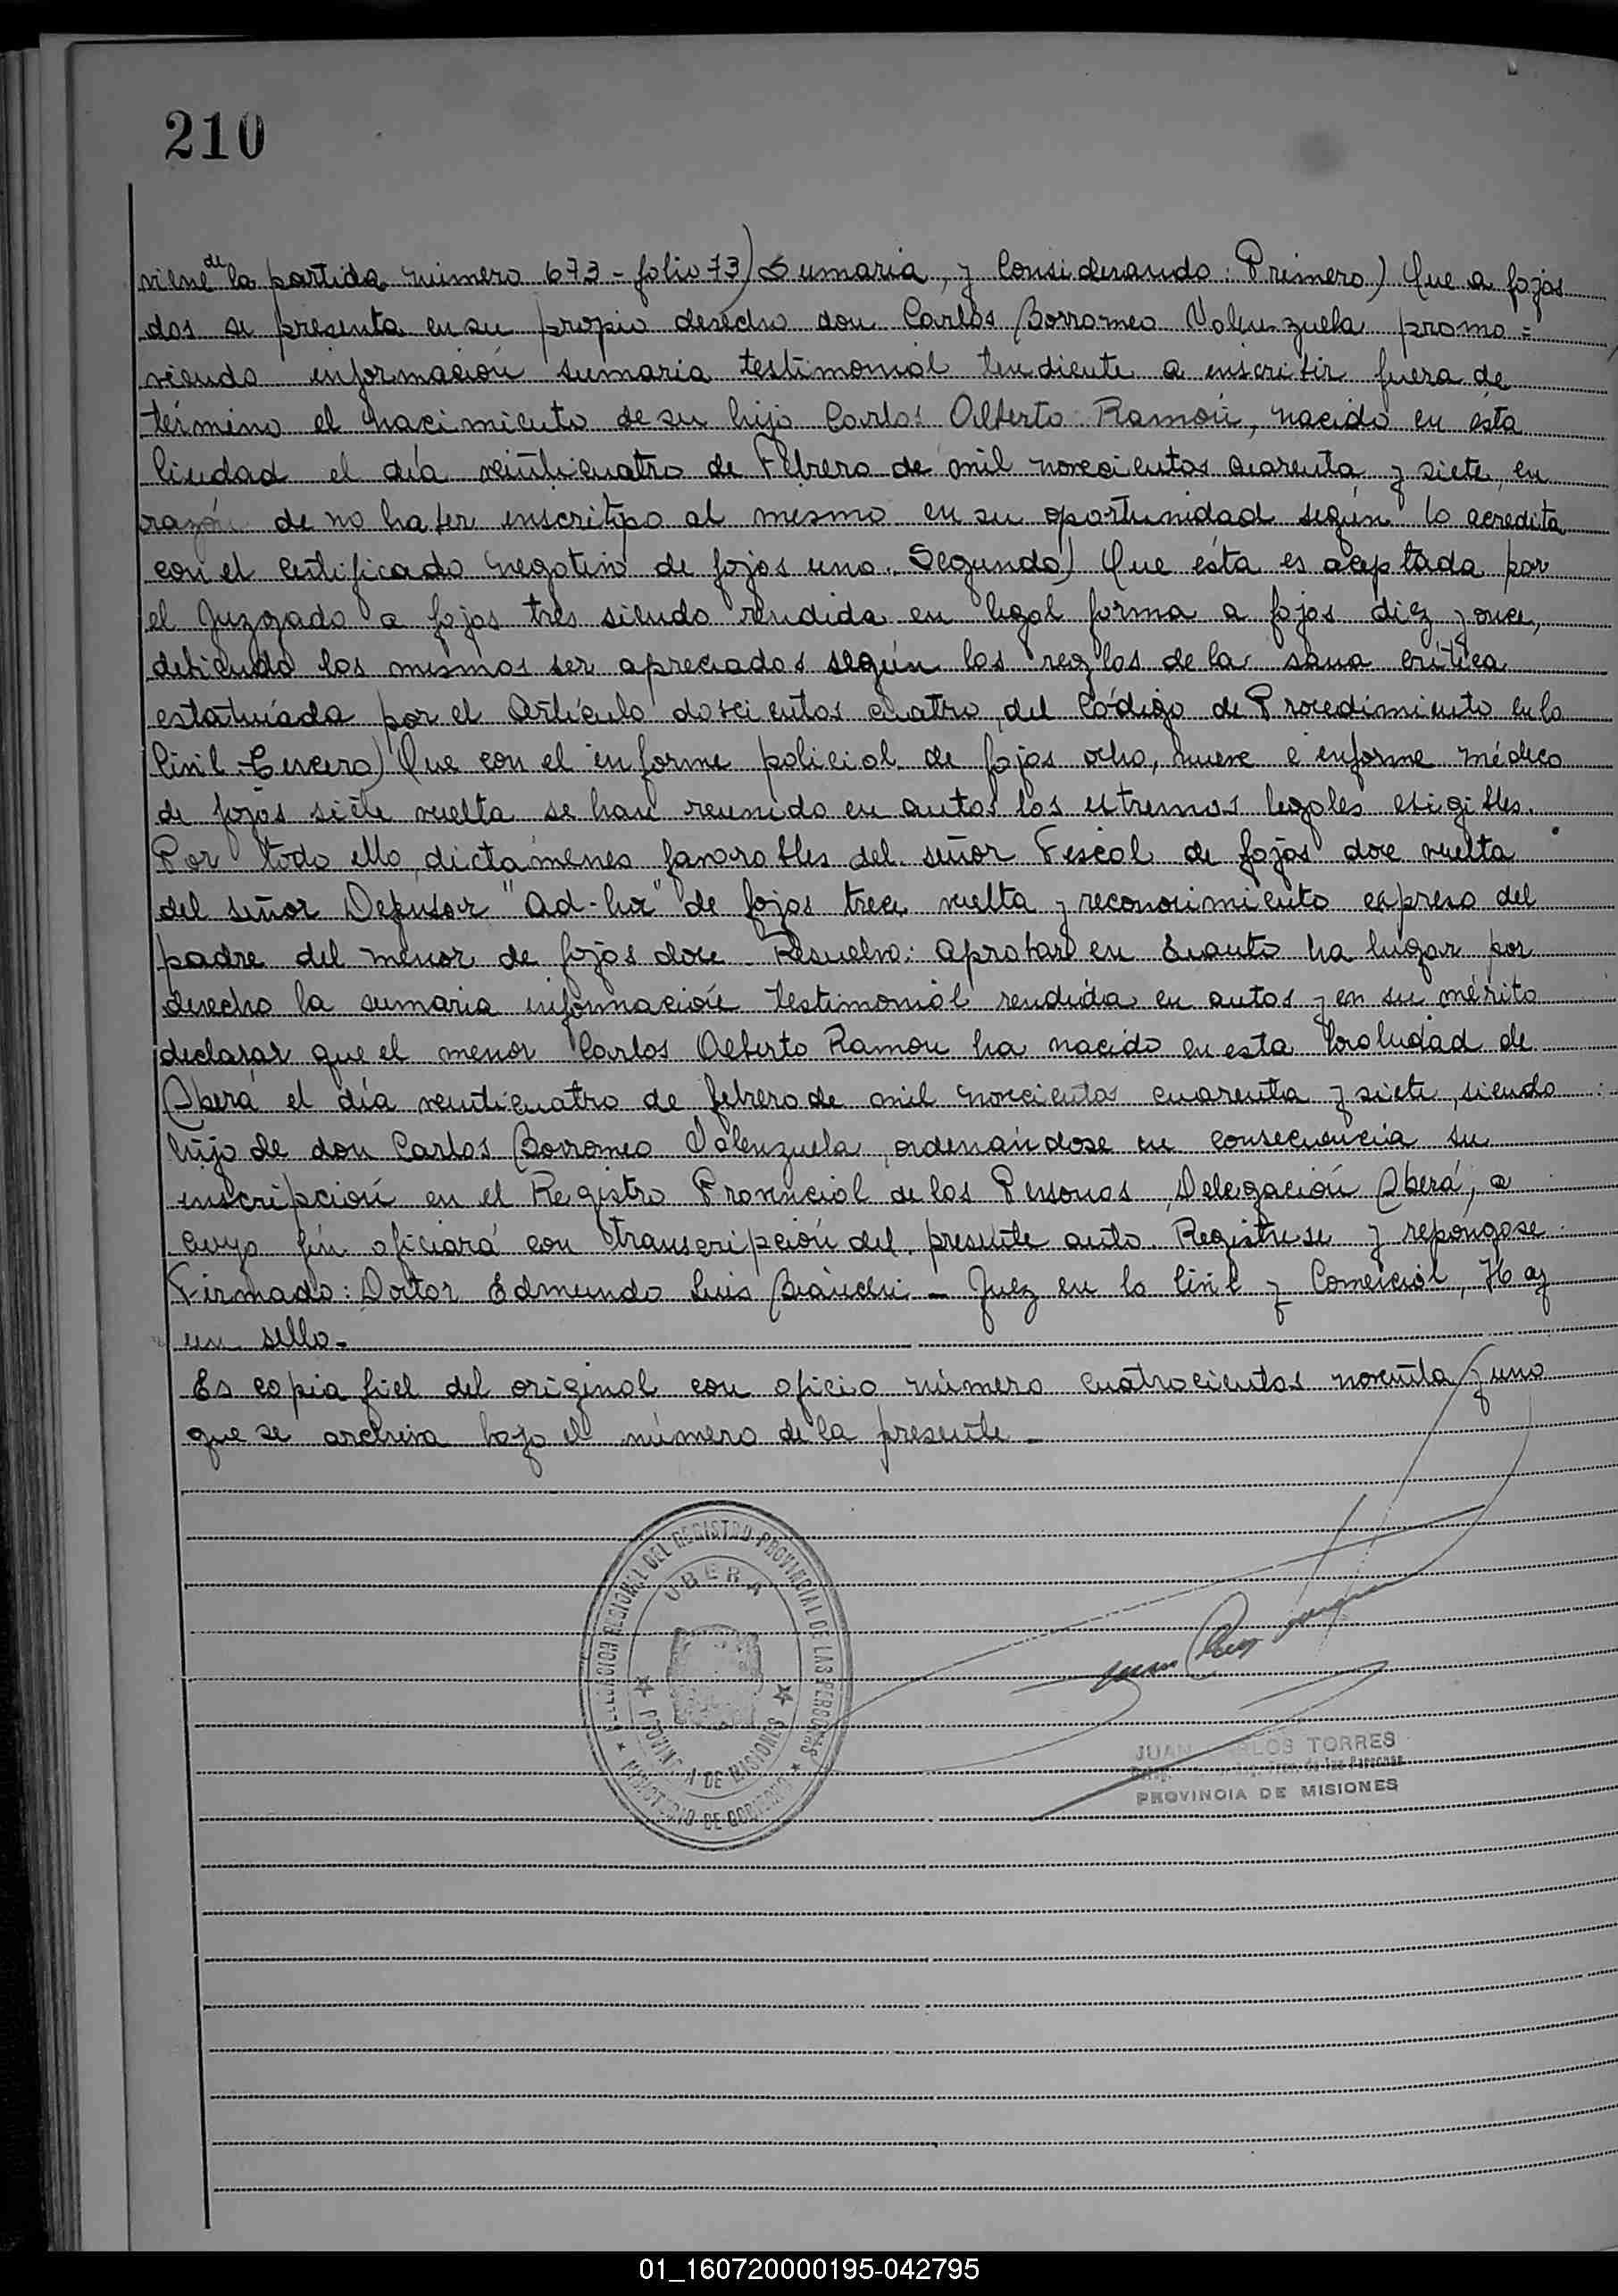 210
viene de la partida número 673 - folio 73) Sumaria, y Considerando: Primero) Que a fojas
dos se presenta en su propio derecho don Carlos Borromeo Valenzuela promo=
viendo información sumaria testimonial tendiente a inscribir fuera de
término el nacimiento de su hijo Carlos Alberto Ramón, nacido en ésta
Ciudad el día veinticuatro de Febrero de mil novecientos cuarenta y siete, en
razón de no haber inscripto al mismo en su oportunidad según lo acredita
con el certificado negativo de fojas una. Segundo) Que ésta es aceptada por
el Juzgado a fojas tres siendo rendida en legal forma a fojas diez y once,
debiendo los mismos ser apreciados según las reglas de la sana crítica
estatuída por el Artículo doscientos cuatro del Código de Procedimiento en lo
Civil - Tercero) Que con el informe policial de fojas ocho, nueve e informe médico
de fojas siete vuelta se han reunido en autos los extremos legales exigibles.
Por todo ello, dictámenes favorables del señor Fiscal de fojas doce vuelta
del señor Defensor "Ad-hoc" de fojas trece vuelta y reconocimiento expreso del
padre del menor de fojas doce - Resuelvo: Aprobar en cuanto ha lugar por
derecho la sumaria información testimonial rendida en autos y en su mérito
declarar que el menor Carlos Alberto Ramón ha nacido en esta localidad de
Oberá el día veinticuatro de febrero de mil novecientos cuarenta y siete, siendo
hijo de don Carlos Borromeo Valenzuela, ordenándose en consecuencia su
inscripción en el Registro Provincial de las Personas, Delegación Oberá, a
cuyo fin oficiará con transcripción del presente auto. Regístrese y repóngase
Firmado: Doctor Edmundo Luis Bianchi - Juez en lo Civil y Comercial, Hay
un sello -
Es copia fiel del original con oficio número cuatrocientos noventa y uno
que se archiva bajo el número de la presente -
DELEGACION REGIONAL DEL REGISTRO PROVINCIAL DE LAS PERSONAS
OBERA
PROVINCIA DE MISIONES
MINISTERIO DE GOBIERNO
JUAN CARLOS TORRES
de las Personas
PROVINCIA DE MISIONES
01_160720000195-042795